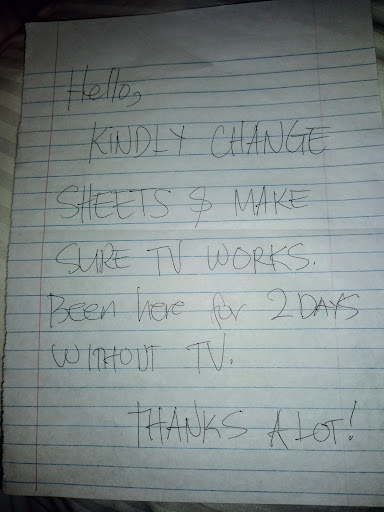 Hello,
KINDLY CHANGE
SHEETS & MAKE
SURE TV WORKS.
Been here for 2 DAYS
WITHOUT TV.
THANKS A LOT!